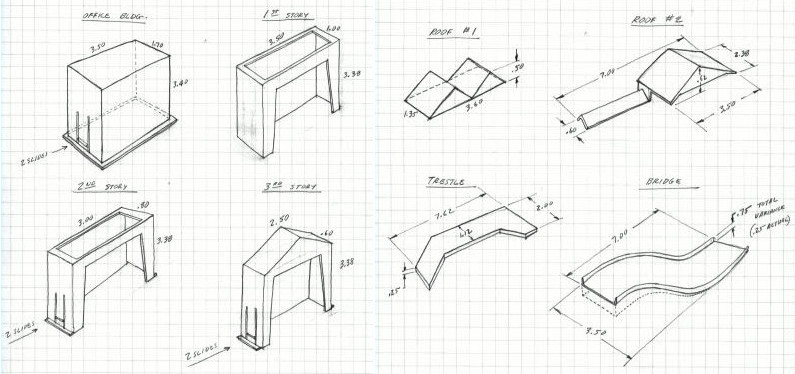 OFFICE BLDG.
3.50
1.70
3.40
2 SLIDES
1ST STORY
3.50
1.00
3.38
2ND STORY
3.00
.80
3.38
2 SLIDES
3RD STORY
2.50
.60
3.38
2 SLIDES
ROOF #1
.50
1.35
3.60
ROOF #2
7.00
2.38
.62
3.50
.60
TRESTLE
7.62
2.00
.25
BRIDGE
7.00
.75 TOTAL
VARIANCE
(.25 ACTUAL)
3.50